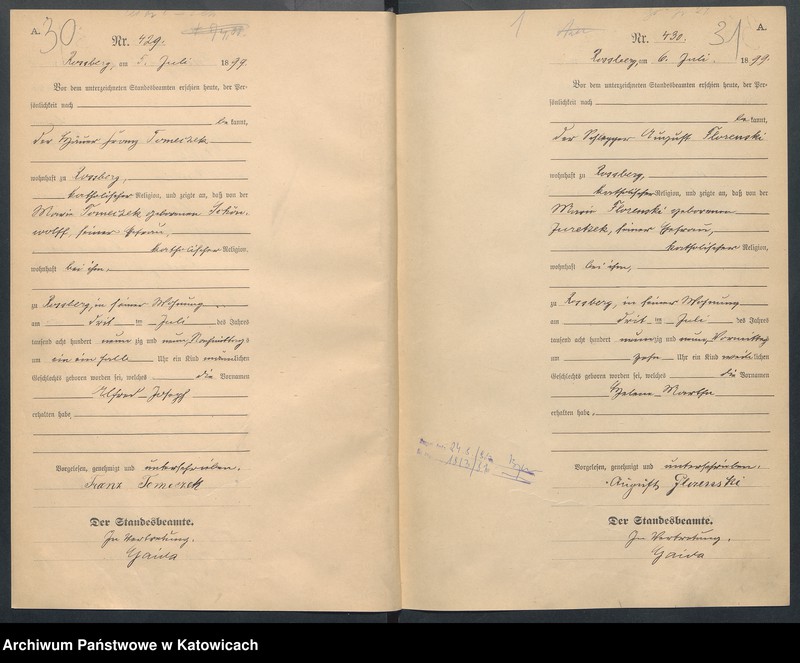 A.
30
Nr. 429.
Rossberg, am 5. Juli 1899.
Vor dem unterzeichneten Standesbeamten erschien heute, der Per-
sönlichkeit nach
be kannt,
der Häuer Franz Tomeczek
wohnhaft zu Rossberg,
katholischer Religion, und zeigte an, daß von der
Marie Tomeczek geborenen Schön-
wolff, seiner Ehefrau,
katholischer Religion,
wohnhaft bei ihm,
zu Rossberg, in seiner Wohnung
am drit im Juli des Jahres
tausend acht hundert neun zig und neun, Nachmittags
um ein ein halb Uhr ein Kind männlichen
Geschlechts geboren worden sei, welches die Vornamen
Alfred Joseph
erhalten habe
Vorgelesen, genehmigt und unterschrieben.
Franz Tomeczek
Der Standesbeamte.
In Vertretung.
Gaida
1
31
A.
Nr. 430.
Rossberg, am 6. Juli 1899.
Vor dem unterzeichneten Standesbeamten erschien heute, der Per-
sönlichkeit nach
be kannt,
der Schlepper August Florenski
wohnhaft zu Rossberg,
katholischer Religion, und zeigte an, daß von der
Marie Florenski geborenen
Juretzek, seiner Ehefrau,
katholischer Religion,
wohnhaft bei ihm,
zu Rossberg, in seiner Wohnung
am drit im Juli des Jahres
tausend acht hundert neun zig und neun, Vormittag
um zehn Uhr ein Kind weiblichen
Geschlechts geboren worden sei, welches die Vornamen
Helene Martha
erhalten habe.
Vorgelesen, genehmigt und unterschrieben.
August Florenski
Der Standesbeamte.
In Vertretung.
Gaida
Archiwum Państwowe w Katowicach